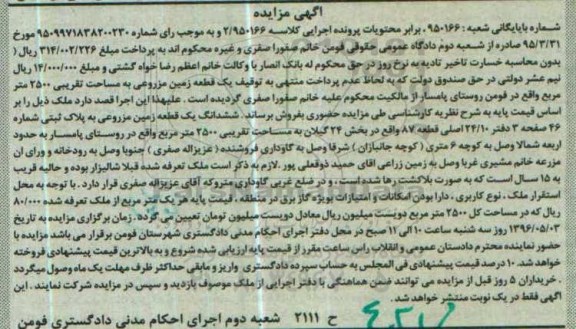 آگهی مزایده
شماره بایگانی شعبه : ۹۵۰۱۶۶ . برابر محتویات پرونده اجرایی کلاسه ۲/۹۵۰۱۶۶ و به موجب رای شماره ۹۵۰۹۹۷۱۸۳۸۲۰۰۲۳۰ مورخ
۹۵/۳/۳۱ صادره از شعبه دوم دادگاه عمومی حقوقی فومن خانم صفورا صفری و غیره محکوم اند به پرداخت مبلغ ۳۱۴/۰۰۲/۲۲۶ ریال (
بدون محاسبه خسارت تاخیر تادیه به نرخ روز در حق محکوم له بانک انصار با وکالت خانم اعظم رضا خواه گشتی و مبلغ ۱۴/۰۰۰/۰۰۰ ریال
نیم عشر دولتی در حق صندوق دولت که به لحاظ عدم پرداخت منتهی به توقیف یک قطعه زمین مزروعی به مساحت تقریبی ۲۵۰۰ متر
مربع واقع در فومن روستای پامسار از مالکیت محکوم علیه خانم صفورا صفری گردیده است . علیهذا این اجرا قصد دارد ملک ذیل را بر
اساس قیمت پایه به شرح نظریه کارشناسی طی مزایده حضوری بفروش برساند . ششدانگ یک قطعه زمین مزروعی به پلاک ثبتی شماره
۴۶ صفحه ۳ دفتر ۲۴/۱۰ اصلی قطعه ۸۷ واقع در بخش ۲۴ گیلان به مساحت تقریبی ۲۵۰۰ متر مربع واقع در روستای پامسار به حدود
اربعه شمالا وصل به کوچه ۶ متری ( کوچه جانبازان ) شرقا وصل به گاوداری فروشنده ( عزیزاله صفری ) جنوبا وصل به رودخانه و ورای ان
مزرعه خانم مشیری غربا وصل به زمین زراعی اقای حمید ذوقعلی پور . لازم به ذکر است ملک تعرفه شده قبلا شالیزار بوده و حالیه قریب
به ۱۵ سال است که به صورت بلاکشت رها شده است . و در ضلع غربی گاوداری متروکه آقای عزیزاله صفری قرار دارد . با توجه به محل
استقرار ملک ، نوع کاربری ، دارا بودن امکانات و امتیازات بویژه گاز برق در منطقه ، قیمت پایه هر یک متر مربع از ملک تعرفه شده ۸۰/۰۰۰
ریال که در مساحت کل ۲۵۰۰ متر مربع دویست میلیون ریال معادل دویست میلیون تومان تعیین می گردد . زمان برگزاری مزایده به تاریخ
۱۳۹۶/۰۵/۰۳ روز سه شنبه ساعت ۱۰ الی ۱۱ صبح در محل دفتر اجرای احکام مدنی دادگستری شهرستان فومن برقرار می باشد مزایده با
حضور نماینده محترم دادستان عمومی و انقلاب راس ساعت مقرر از قیمت پایه ارزیابی شده شروع و به بالاترین قیمت پیشنهادی فروخته
خواهد شد . ۱۰ درصد قیمت پیشنهادی فی المجلس به حساب سپرده دادگستری واریز و مابقی حداکثر ظرف مهلت یک ماه وصول میگردد
. خریداران ۵ روز قبل از مزایده می توانند ضمن هماهنگی با دفتر اجرایی از ملک موصوف بازدید و سپس در مزایده شرکت نمایند . این
آگهی فقط در یک نوبت منتشر خواهد شد .
ح ۲۱۱۱ شعبه دوم اجرای احکام مدنی دادگستری فومن